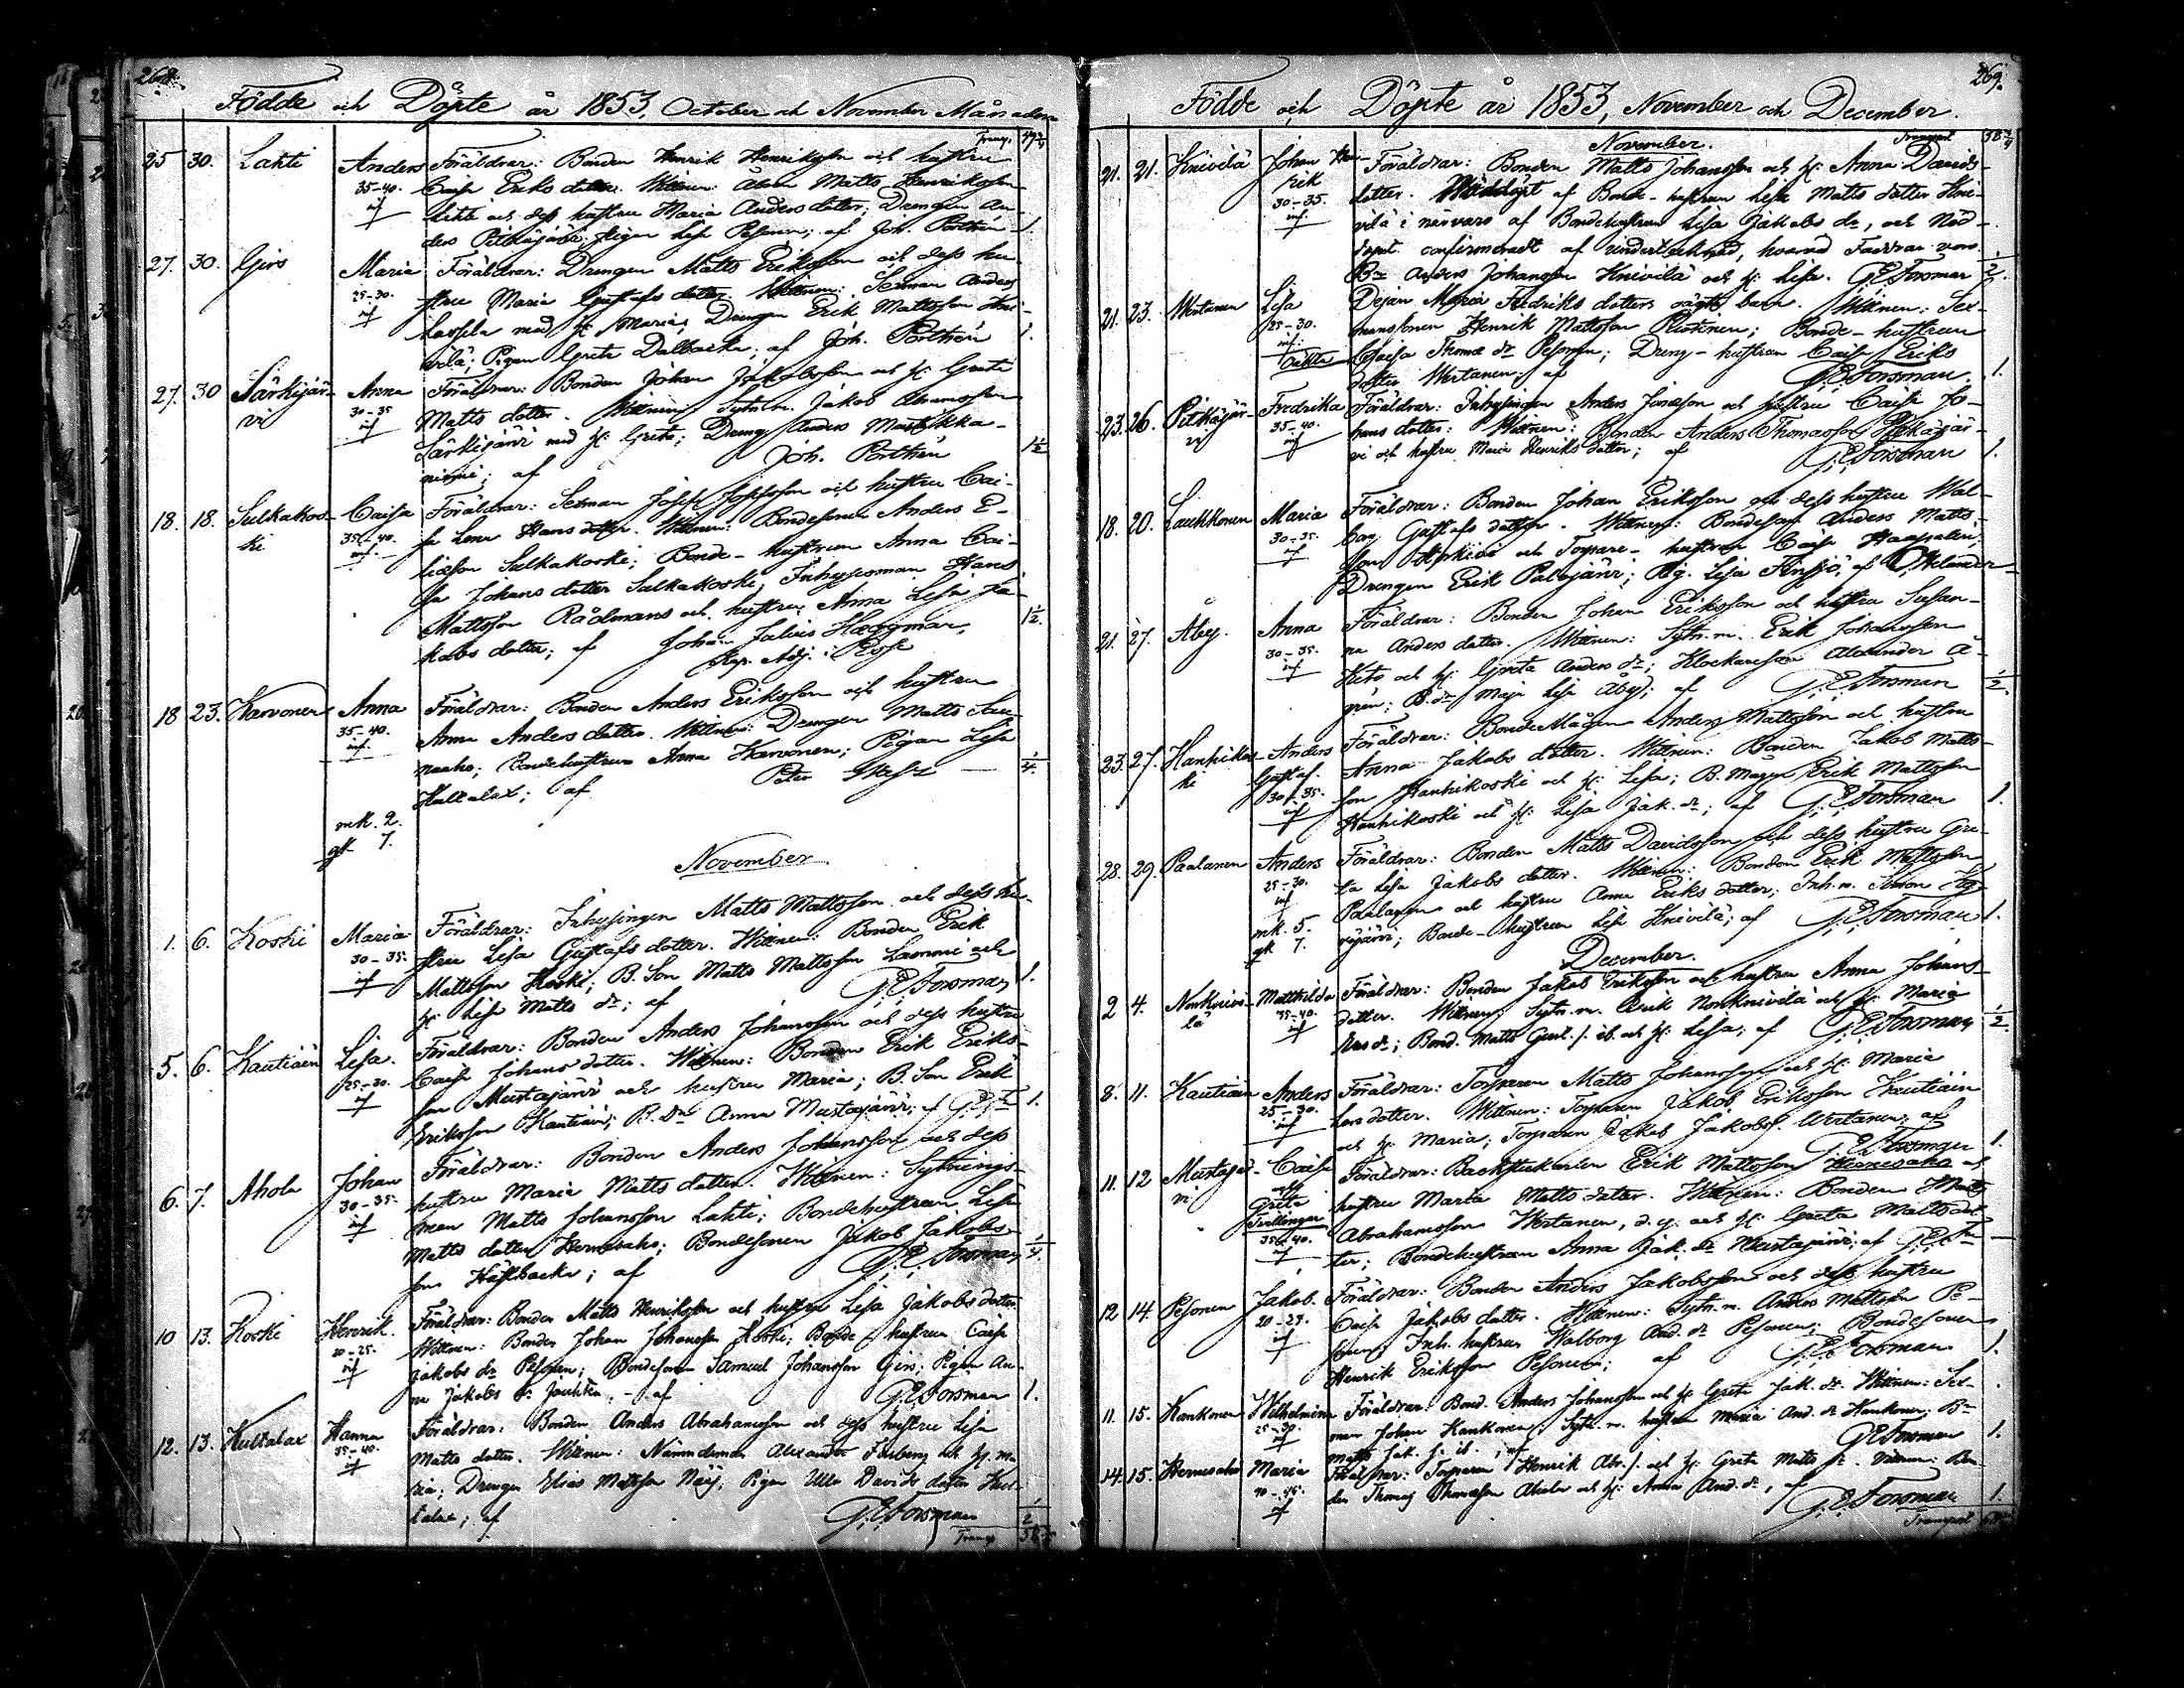 268.
Födde och Döpte år 1853, October och November Månader
Transp. 
25 30. Lahti Anders Föräldrar: Bonden Henrik Henriksson och hustru
35-40. Caisa Eriks dotter. Wittnen: Åbon Matts Henriksson
inf Lahti och dess hustru Maria Anders dotter; Drengen An-
ders Pitkäjärvi; Pigan Lisa Pesonen; af Joh. Porthén 1
27. 30. Girs Maria Föräldrar: Drengen Matts Eriksson och dess hu-
25-30. stru Maria Gustafs dotter. Wittnen: Sexman Anders
inf Kassila med h: Maria; Drengen Erik Mattsson Kni-
vilä; Pigan Greta Dalbacka; af Joh. Porthén 1.
27. 30 Särkijär- Anna Föräldrar: Bonden Johan Jakobsson och h: Greta
vi 30-35 Matts dotter. Wittnen: Sytn.m. Jakob Abramsson
inf Särkijärvi med h: Greta; Dreng Anders
niemi; af Joh. Porthén 1½
18. 18. Sulkakos- Caisa Föräldrar: Sexman Josef Josefsson och hustru Cai-
ki 35-40. sa Lena Hans dotter. Wittnen: Bondesonen Anders E-
inf. liasson Sulkakoski; Bonde-hustrun Anna Cai-
sa Johans dotter Sulkakoski; Inhysesman Hans
Mattsson Rådmans och hustru Anna Lisa Ja- 1½.
kobs dotter; af Johan Julius Häggman,
Kap. Adj. i
18 23. Karvonen Anna Föräldrar: Bonden Anders Eriksson och hustru
35-40. Anna Anders dotter. Wittnen: Drengen Matts Sau-
inf. naaho; Bondehustrun Anna Karvonen; Pigan Lisa
Kultalax; af Peter
mk. 2.
qk 7.
November
1. 6. Koski Maria Föräldrar: Inhysingen Matts Mattsson och dess hu-
30-35. stru Lisa Gustafs dotter. Wittnen: Bonden Erik
inf Mattsson Koski; B. Son Matts Mattsson Lammi och
h: Lisa Matts dr; af G. E. Forsman 1.
5. 6. Kautiain Lisa. Föräldrar: Bonden Anders Johansson och dess hustru
25-30. Caisa Johans dotter. Wittnen: Bonden Erik Eriks-
inf son Mustajärvi och hustru Maria; B. Son Erik
Eriksson Kautiain; B. dr Anna Mustajärvi; af G. E. F. 1.
6. 7. Ahola Johan Föräldrar: Bonden Anders Johansson och dess
30-35. hustru Maria Matts dotter. Wittnen: Sytnings-
inf man Matts Johansson Lahti; Bondehustrun Lisa
Matts dotter Hernesaho; Bondesonen Jakob Jakobs-
son Häslbacka; af G. E. Forsman
10 13. Koski Henrik. Föräldrar: Bonden Matts Henriksson och hustru Lisa Jakobs dotter.
20-25. Wittnen: Bonden Johan Johansson Koski; Bonde-hustrun Caisa
inf Jakobs dr Pesonen; Bondesonen Samuel Johansson Girs; Pigan An-
na Jakobs dr; af G. E. Forsman 1.
12. 13. Kultalax Hanna Föräldrar: Bonden Anders Abrahamsson och dess hustru Lisa
35-40. Matts dotter. Wittnen: Nämndeman Alexander Finberg och h: Ma-
inf ria; Drengen Elias Mattsson Näsi; Pigan Ulla Davids dotter Kul-
talax; af G. E. Forsman ½
Transp
269.
Födde och Döpte år 1853, November och December.
November. Transport
21. 21. Knivilä Johan Hen- Föräldrar: Bonden Matts Johansson och h: Anna Davids-
rik dotter. Nöddöpt af Bonde-hustrun Lisa Matts dotter Kni-
30-35. vilä i närvaro af Bondehustrun Lisa Jakobs dr, och Nöd-
inf. döpet confirmeradt af undertecknad, hvarvid Faddrar voro
Bn Anders Johansson Knivilä och h: Lisa. G. E. Forsman ½.
21. 23 Wertanen Lisa Pejan Maria Fredriks dotters oägta barn. Wittnen: Sex-
25-30. manssonen Henrik Mattsson; Bonde-hustrun
inf. Caisa Thoms dr Pesonen; Dreng-hustrun Caisa Eriks
oäkta dotter Wertanen; af G. E. Forsman 1.
23. 26. Pitkäjär- Fredrika Föräldrar: Inhysingen Anders Jonasson och hustru Caisa Jo-
vi 35-40. hans dotter: Wittnen: Bonden Anders Thomasson Pitkäjär-
inf vi och hustru Maria Henriks dotter; af G. E. Forsman 1.
18. 20. Laukkonen Maria Föräldrar: Bonden Johan Eriksson och dess hustru Wal-
30-35. borg Gustafs dotter. Wittnen: Bondeson Anders Matts-
inf son och Torpare-hustrun Caisa Haapalen,
Drengen Erik Palojärvi; Pig. Lisa; af
21. 27. Åby. Anna Föräldrar: Bonden Johan Eriksson och hustru Susan-
30-35. na Anders dotter. Wittnen: Sytn.m. Erik Johansson
inf Keto och h: Greta Anders dr; Klockareson Alexander Å-
gren; B. dr Maja Lisa Åby; af G. E. Forsman ½.
23. 27. Hanhikos- Anders Föräldrar: BondeMågen Anders Mattsson och hustru
ki Gustaf. Anna Jakobs dotter. Wittnen: Bonden Jakob Matts-
30-35. son Hanhikoski och h: Lisa; B. Mågen Erik Mattsson
inf Hanhikoski och h: Lisa Jak. dr; af G. E. Forsman 1.
28. 29. Paalanen Anders Föräldrar: Bonden Matts Davidsson och dess hustru Gre-
25-30. ta Lisa Jakobs dotter. Wittnen: Bonden Erik Mattsson
inf Paalanen och hustru Anna Eriks dotter; Inh. m. Simon
mk. 5. Bonde-hustrun Lisa Knivilä; af G. E. Forsman 1.
qk 7.
December.
2 4. Norrknivi- Mathilda Föräldrar: Bonden Jakob Eriksson och hustru Anna Johans-
lä 35-40. dotter. Wittnen: Sytn. m. Erik Norrknivilä och h: Maria
inf dr; Bond. Matts Gust. s. ib. och h: Lisa; af G. E. Forsman ½.
8. 11. Kautiain Anders Föräldrar: Torparen Matts Johansson och h: Maria
25-30. dotter. Wittnen: Torparen Jakob Eriksson Kautiain
inf och h: Maria; Torparen Jakob Jakobs. Wertanen; af
G. E. Forsman 1.
11. 12 Mustajär- Caisa Föräldrar: Backstukarlen Erik Mattsson Hernesaho och
vi och hustru Maria Matts dotter. Wittnen: Bonden Matts
Greta Abrahamsson Wertanen, d. y. och h: Greta Matts dot-
Tvillingar ter; Bondehustrun Anna Jak. dr Mustajärvi; af G. E. Fn
35-40.
inf
12 14. Pesonen Jakob. Föräldrar: Bonden Anders Jakobsson och dess hustru
20-25. Caisa Jakobs dotter. Wittnen: Sytn. m. Anders Mattsson Pe-
inf sonen; Inh. hustrun Walborg And. dr Pesonen; Bondesonen
Henrik Eriksson Pesonen; af G. E. Forsman 1.
11. 15. Kankonen Wilhelmina Föräldrar: Bond. Anders Johansson och h: Greta Jak. dr. Wittnen: Sex-
25-30. man Johan Kankonen; Sytn. m. hustrun Maria And. dr Kankonen; Bn
inf Matts Jak. s. ib.; af G. E. Forsman 1.
14. 15. Hernesaho Maria Föräldrar: Torparen Henrik Abr. s. och h: Greta Matts dr. Wittnen: Bon-
40-45. den Thomas Thomasson och h: Anna And. dr, af
inf G. E. Forsman 1.
Transport